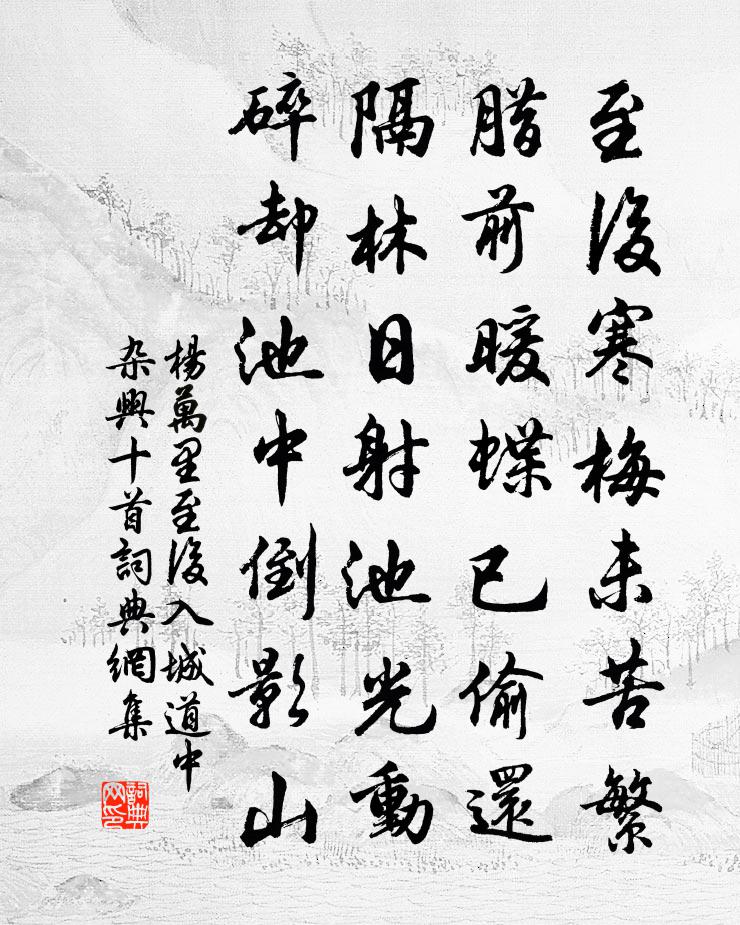 至後寒梅未苦繁
腊前暖蝶已偷還
隔林日射池光動
碎却池中倒影山
楊萬里至後入城道中
杂興十首詞典網集
詞典
网印